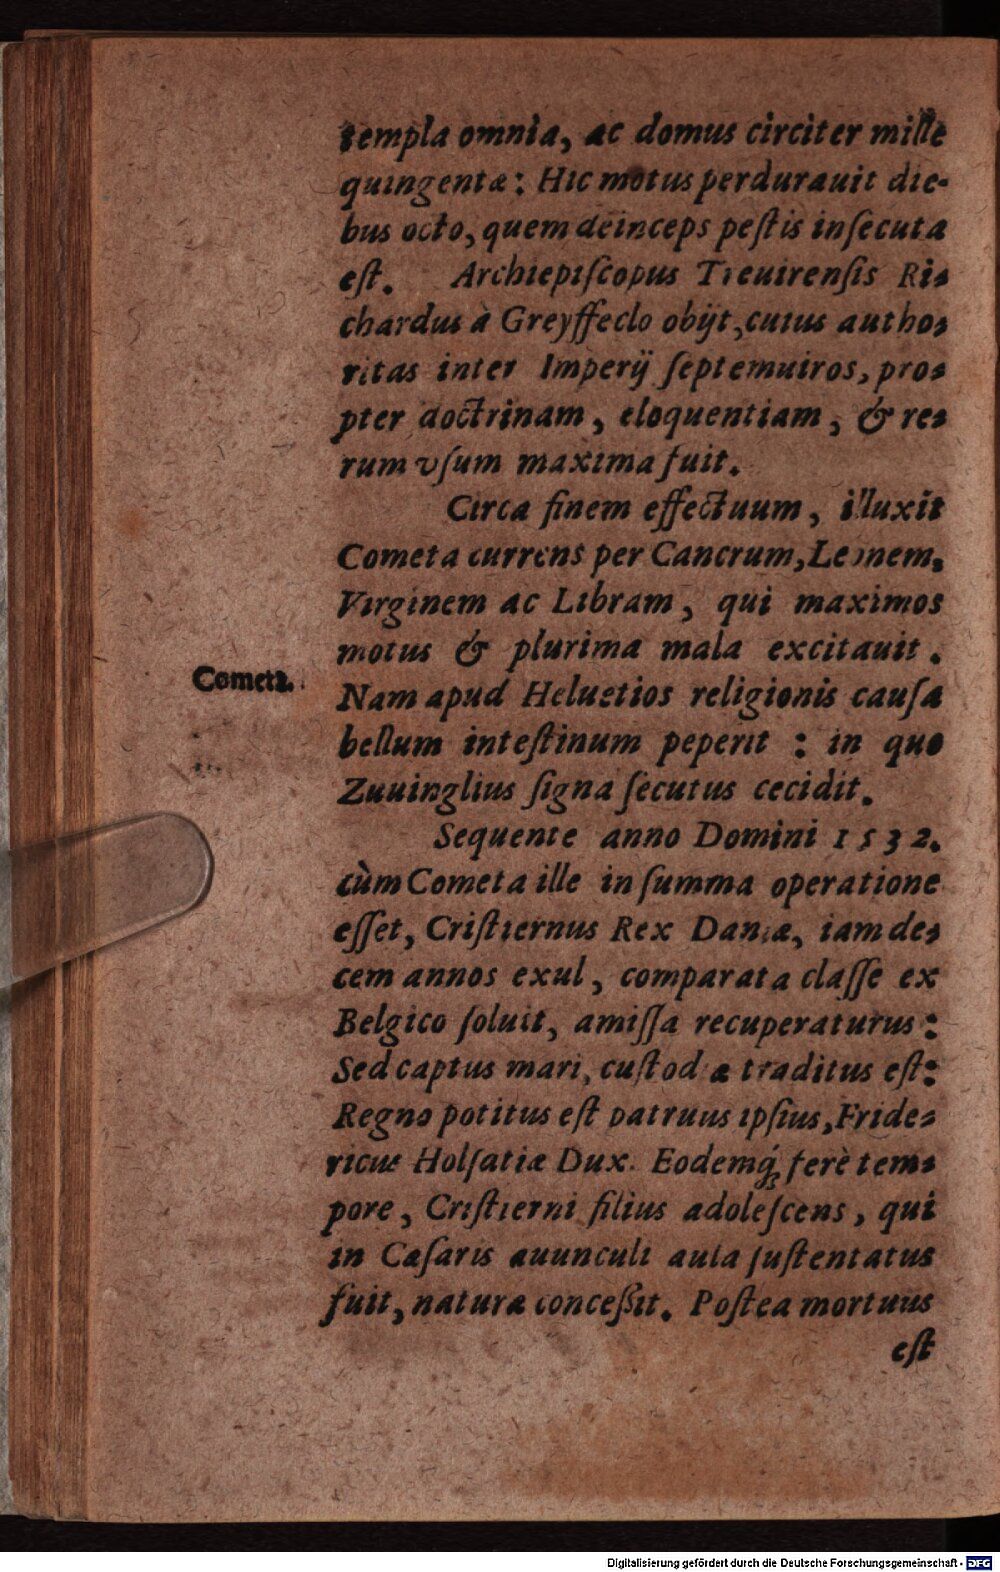 templa omnia, ac domus circiter mille
quingentæ: Hic motus perdurauit die-
bus octo, quem deinceps peſtis inſecuta
eſt. Archiepiſcopus Treuirenſis Ri-
chardus à Greyffeclo obijt, cuius autho-
ritas inter Imperij ſeptemuiros, pro-
pter doctrinam, eloquentiam, & re-
rum vſum maxima fuit.
Circa finem effectuum, illuxit
Cometa currens per Cancrum, Leonem,
Virginem ac Libram, qui maximos
motus & plurima mala excitauit.
Cometa.
Nam apud Heluetios religionis cauſa
bellum inteſtinum peperit: in quo
Zuuinglius ſigna ſecutus cecidit.
Sequente anno Domini 1532.
cùm Cometa ille in ſumma operatione
eſſet, Criſtiernus Rex Daniæ, iam de-
cem annos exul, comparata claſſe ex
Belgico ſoluit, amiſſa recuperaturus:
Sed captus mari, cuſtodiæ traditus eſt:
Regno potitus eſt patruus ipſius, Fride-
ricus Holſatiæ Dux. Eodemq́; ferè tem-
pore, Criſtierni filius adoleſcens, qui
in Cæſaris auunculi aula ſuſtentatus
fuit, naturæ conceßit. Poſtea mortuus
eſt
Digitalisierung gefördert durch die Deutsche Forschungsgemeinschaft - DFG